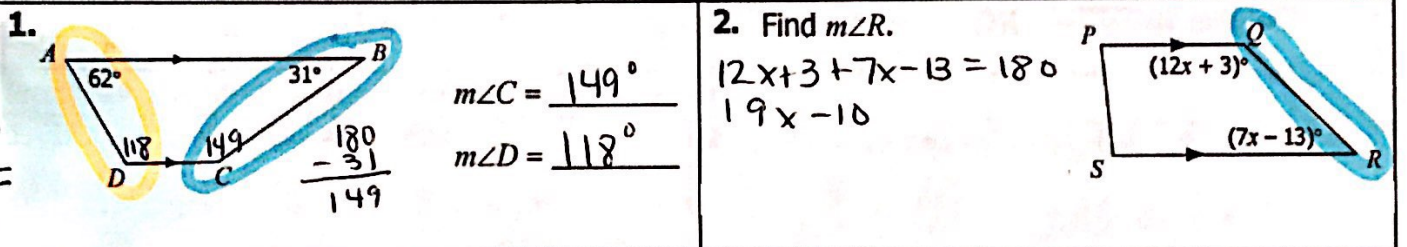 1.
A
B
62°
31°
118
149
D
C
180
- 31
149
m∠C = 149°
m∠D = 118°
2. Find m∠R.
12x+3+7x-13=180
19x-10
P
Q
(12x + 3)°
(7x – 13)°
S
R